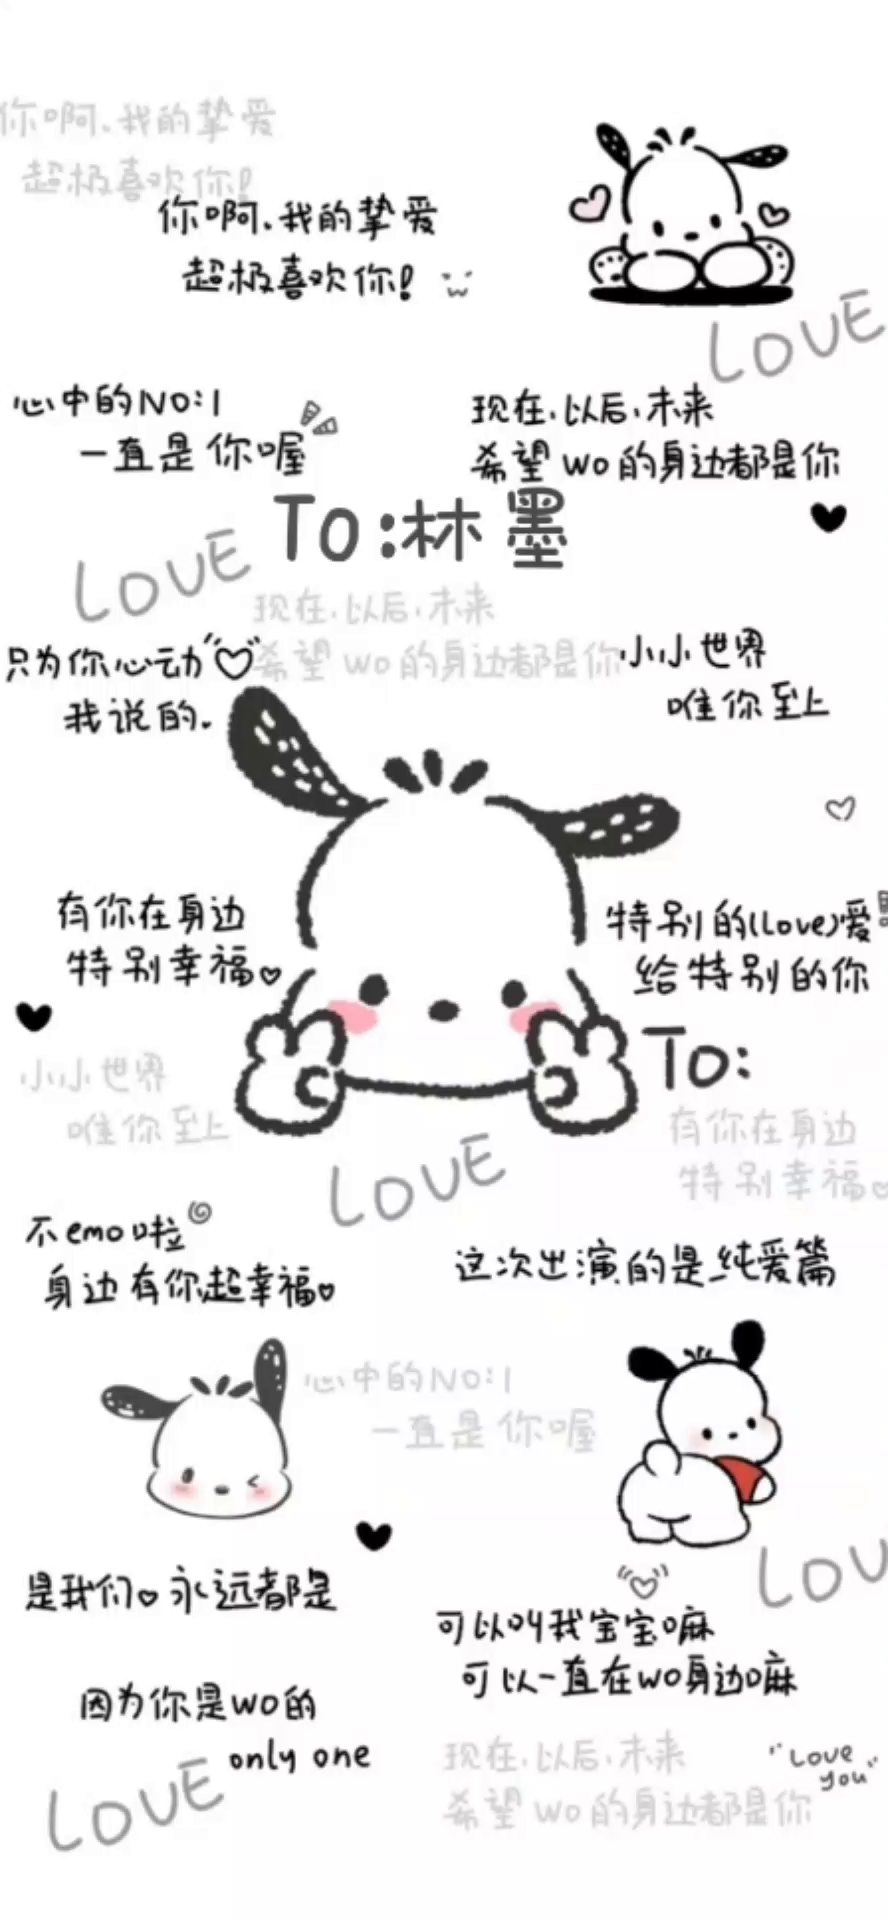 你啊、我的挚爱
超极喜欢你!
你啊、我的挚爱
超极喜欢你!
LOVE
心中的NO:1
一直是你喔
现在、以后、未来
希望wo的身边都是你
To:林墨
LOVE
现在、以后、未来
希望wo的身边都是你
只为你心动
我说的.
小小世界
唯你至上
有你在身边
特别幸福
特别的(Love)爱
给特别的你
To:
小小世界
唯你至上
有你在身边
特别幸福
LOVE
不emo啦
身边有你超幸福
这次出演的是纯爱篇
心中的NO:1
一直是你喔
是我们 永远都是
LOV
可以叫我宝宝嘛
可以一直在wo身边嘛
因为你是wo的
only one
现在、以后、未来
希望wo的身边都是你
"Love
you"
LOVE